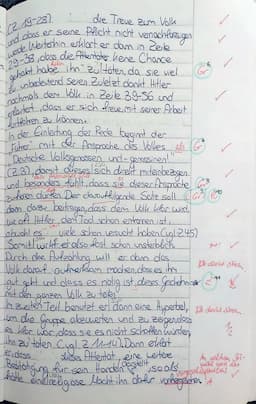 (Z. 19-28). die Treue zum Volk
und dass er seine Pflicht nicht vernachlässigen
werde. Weiterhin erklärt er dann in Zeile
29-38, dass die Attentäter keine Chance
gehabt haben ihn zu töten, da sie viel
zu unbedeutend seien. Zuletzt dankt Hitler
nochmals dem Volk in Zeile 39-56 und
, dass er sich freue mit seiner Arbeit
zu können.
In der Einleitung der Rede beginnt der
Führer mit der Ansprache des Volkes
"Deutsche Volksgenossen und -genossinnen"
(Z. 3), damit dieses sich direkt miteinbezogen
und besonders fühlt, dass sie dieser Ansprache
zuhören dürfen. Der darauffolgende Satz soll
dann dazu beitragen, dass dem Volk klar wird
wie oft Hitler dem Tod schon entronnen ist,
obwohl es viele schon versucht haben (vgl. Z. 45)
Somit wirkt er also fast schon unsterblich.
Durch die Aufzählung will er dann das
Volk darauf aufmerksam machen, dass es ihm
gut geht und dass es nötig ist, dieses Geschehnis
mit dem ganzen Volk zu teilen.
Im zweiten Teil benutzt er dann eine Hyperbel,
um die Gruppe abzuwerten und zu zeigen, dass
es klar war, dass sie es nicht schaffen würden,
ihn zu töten (vgl. Z. 11-14). Dann erklärt
er, dass dieses Attentat eine weitere
Bestätigung für sein Handeln sei, so als
hätte eine religiöse Macht ihn dafür vorhergesehen.